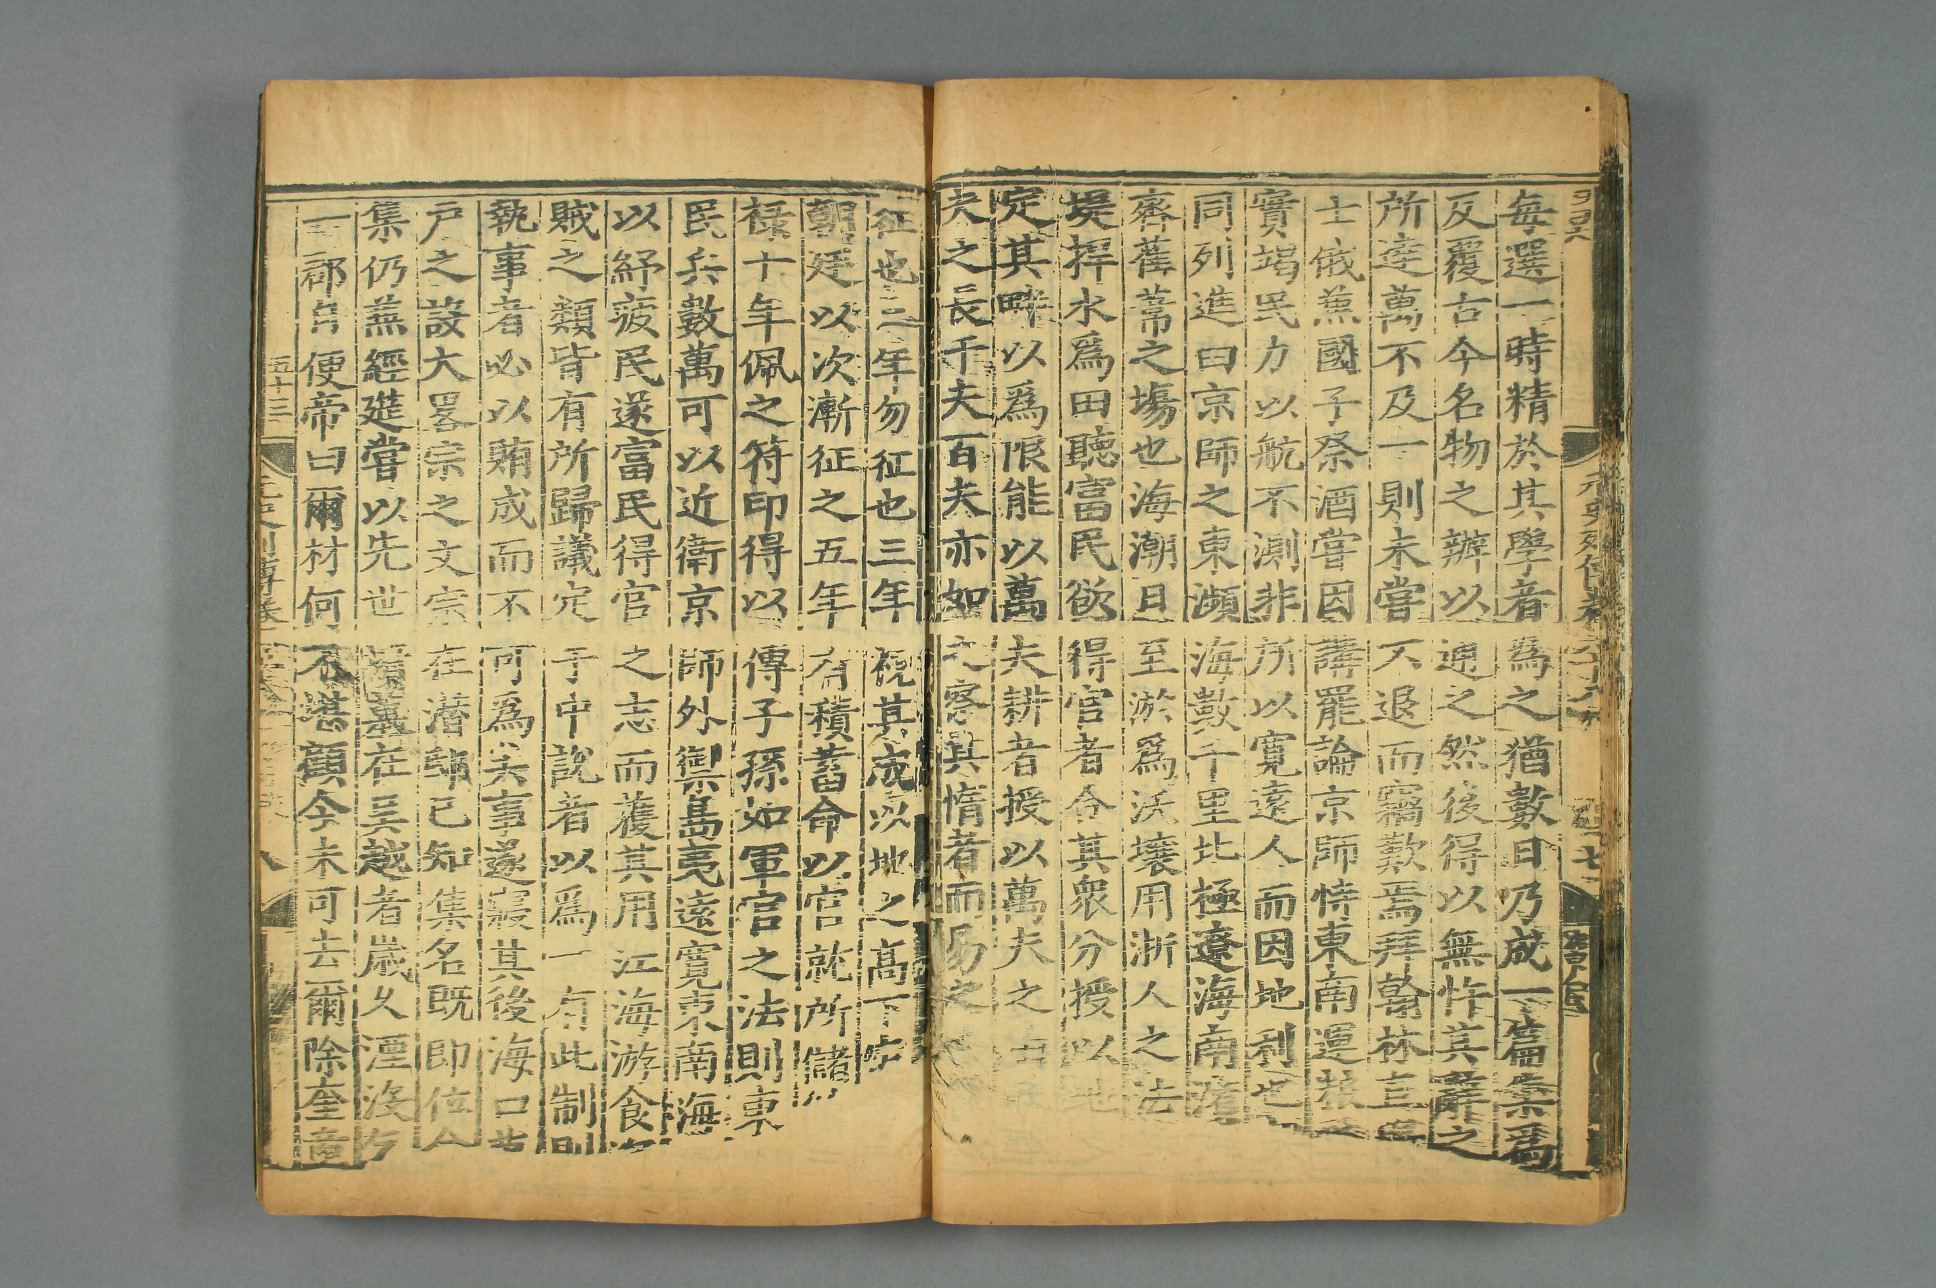 每選一時精於其學者爲之猶數日乃成一篇集爲
反覆古今名物之辨以通之然後得以無忤其辭之
所達萬不及一則未嘗不退而竊歎焉拜翰林直學
士俄蒹國子祭酒嘗因講罷論京師恃東南運粮
實竭民力以航不測非所以寛遠人而因地利也
同列進曰京師之東瀕海數千里北極遼海南濱
齊萑葦之塲也海潮日至淤爲沃壤用浙人之法
堤捍水爲田聽富民欲得官者合其衆分授以地
定其畔以爲限能以萬夫耕者授以萬夫之
夫之長千夫百夫亦如之察其惰者而易之
征也二年勿征也三年視其成以地之高下定
朝廷以次漸征之五年有積蓄命以官就所儲
祿十年佩之符印得以傳子孫如軍官之法則東
民兵數萬可以近衛京師外禦島夷遠寛東南海
以紓疲民遂富民得官之志而獲其用江海游食
賊之類皆有所歸議定于中説者以爲一有此制則
執事者必以賄成而不可爲矣事遂寢其後海口
戶之設大畧宗之文宗在潛邸已知集名既即位命
集仍蒹經筵嘗以先世墳墓在吳越者歲久湮没
一郡自便帝曰爾材何不堪顧今未可去爾除奎章
元史列傳卷六十八
七
五十三